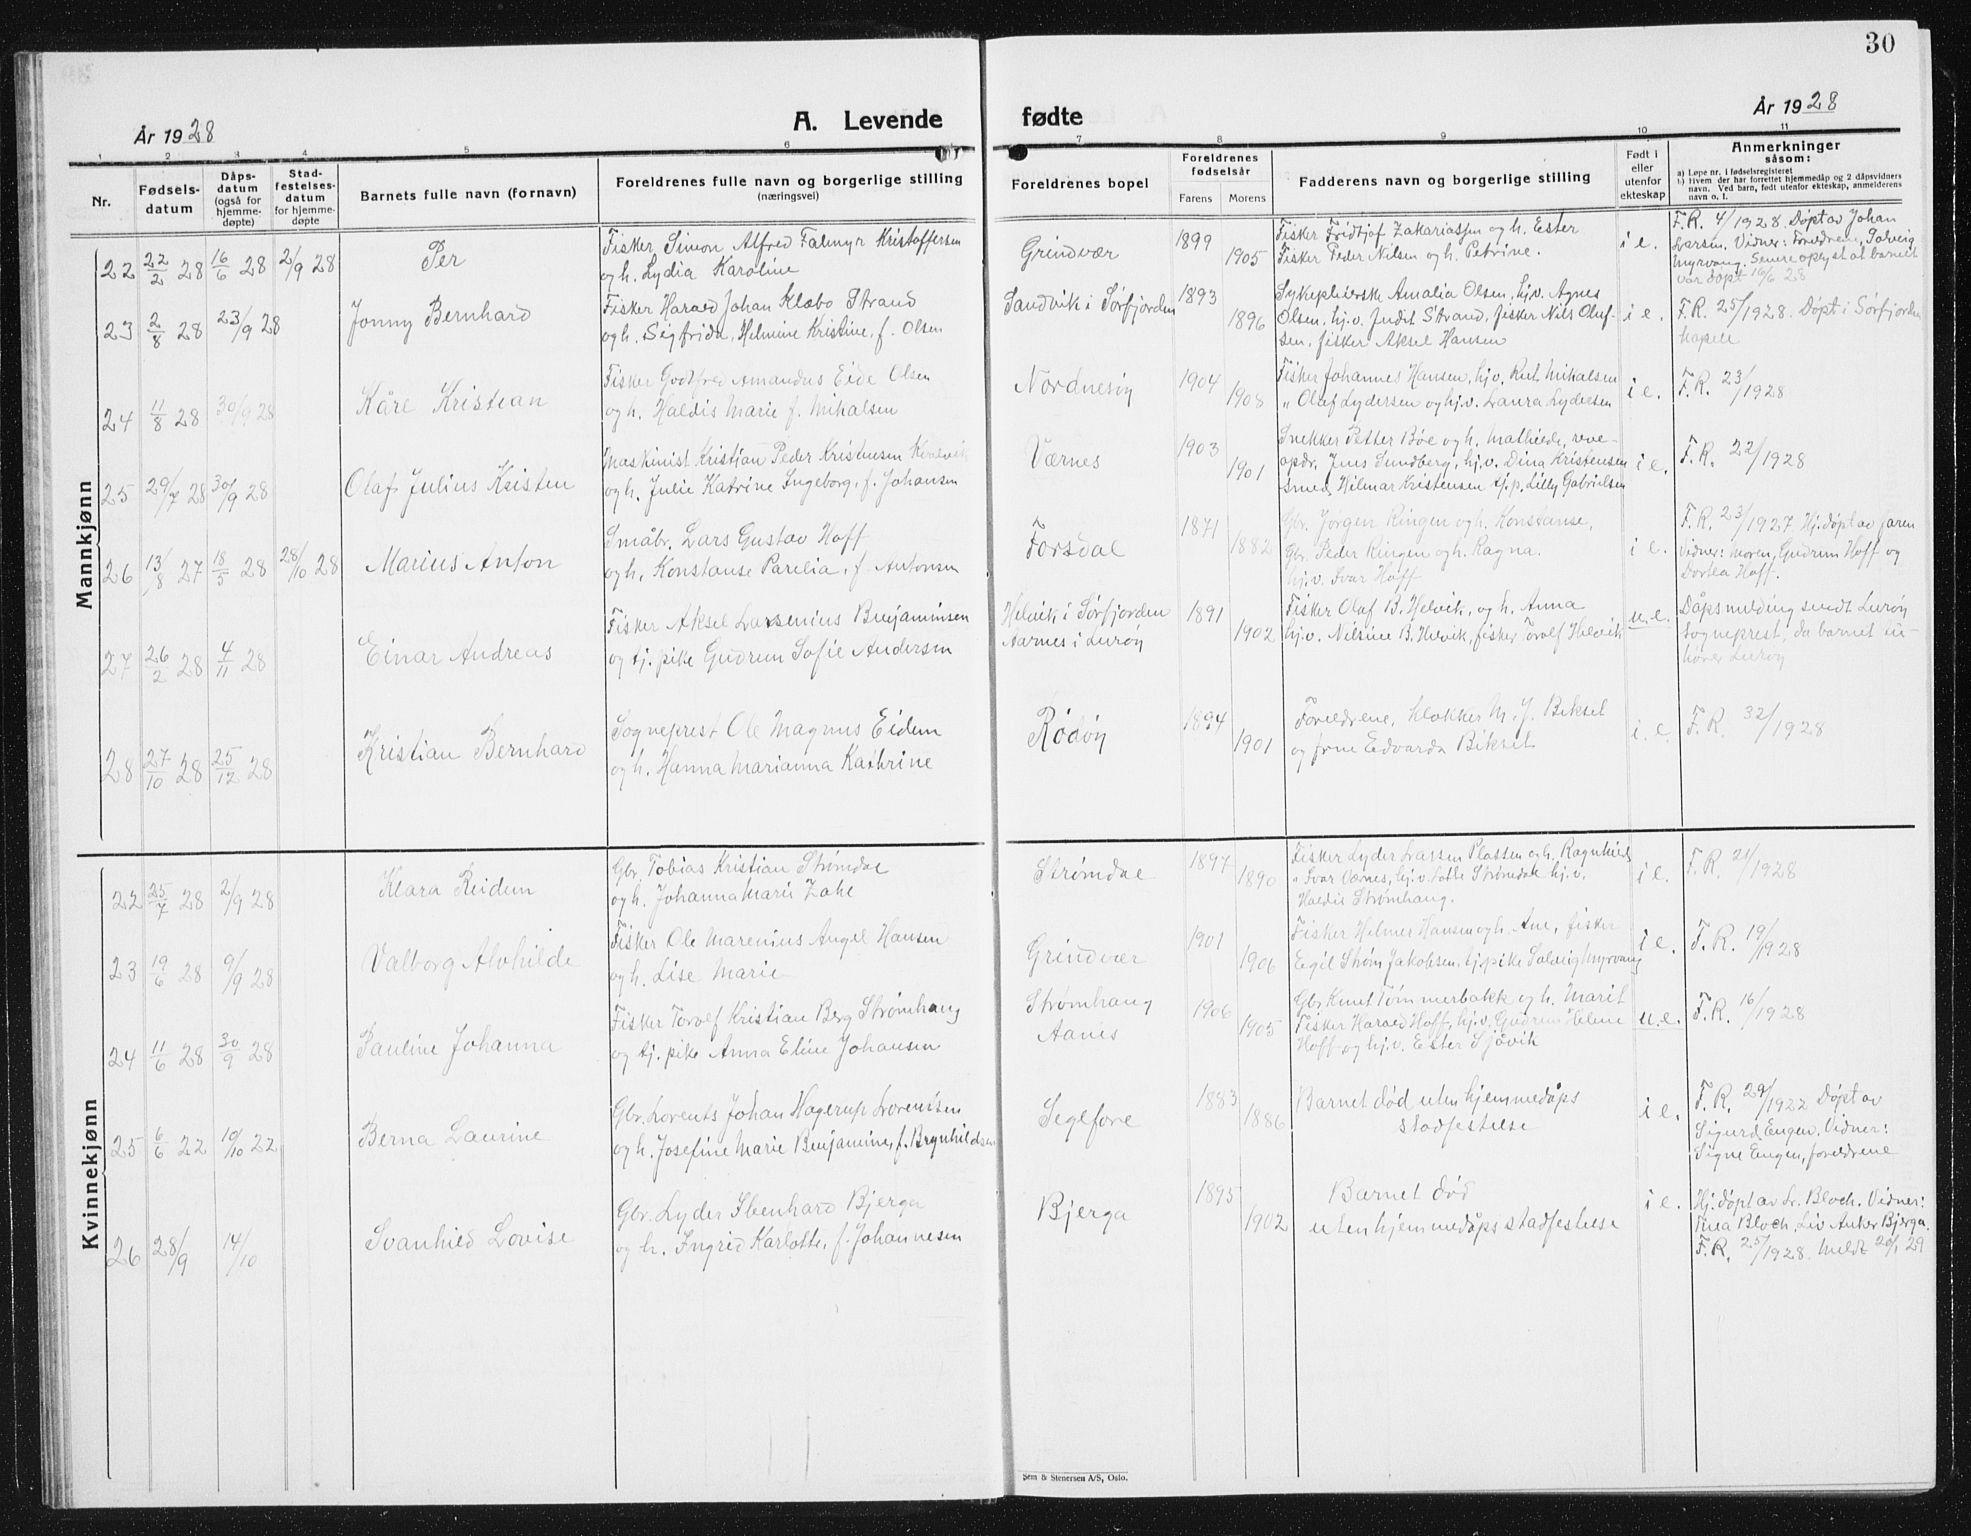 30
År 1928
A. Levende fødte
År 1928
1 2 3 4 5 6 7 8 9 10 11
Nr.
Fødsels-
datum
Dåps-
datum
(også for
hjemme-
døpte)
Stad-
festelses-
datum
for hjemme-
døpte
Barnets fulle navn (fornavn)
Foreldrenes fulle navn og borgerlige stilling
(næringsvei)
Foreldrenes bopel
Foreldrenes
fødselsår
Farens Morens
Fadderens navn og borgerlige stilling
Født i
eller
utenfor
ekteskap
Anmerkninger
såsom:
a) Løpe nr. i fødselsregisteret
b) Hvem der har forrettet hjemmedåp og 2 dåpsvidners
navn. Ved barn, født utenfor ekteskap, anmelderens
navn o. l.
Mannkjønn
22 22/2 28 16/6 28 2/9 28
Per
Fisker Simon Alfred Falmyr Kristoffersen
og h. Lydia Karoline
Grindvær
1899
1905
Fisker Fridtjof Zakariassen og h. Ester
Fisker Peder Nilsen og h. Petrine.
i e.
F.R. 4/1928. Døpt av Johan
Larsen. Vidner: Foreldrene, Solveig
Myrvang. Senere oplyst at barnet
var døpt 16/6 28
23 2/8 28 23/9 28
Jonny Bernhard
Fisker Harald Johan Klæbo Strand
og h. Sigfrida, Helmine Kristine, f. Olsen
Sandvik i Sørfjorden
1893
1896
Sykepleierske Amalia Olsen, hj.v. Agnes
Olsen, hj.v. Judit Strand, fisker Nils Oluf-
sen, fisker Aksel Hansen
i e.
F.R. 25/1928. Døpt i Sørfjorden
kapell
24 11/8 28 30/9 28
Kåre Kristian
Fisker Godtfred Amandus Eide Olsen
og h. Haldis Marie f. Mikalsen
Nordnesøy
1904
1908
Fisker Johannes Hansen, hj.v. Rut Mikalsen
" Olaf Lydersen og hj.v. Laura Lydersen
i e.
F.R. 23/1928
25 29/7 28 30/9 28
Olaf Julius Kristen
Maskinist Kristian Peder Kristensen Kvalvik
og h. Julie Katrine Ingeborg, f. Johansen
Værnes
1903
1901
Snekker Petter Bøe og h. Mathilde, reve-
opdr. Jens Sundberg, hj.v. Dina Kristensen
smed Hilmar Kristensen tj.p. Lilly Gabrielsen
i e.
F.R. 22/1928
26 13/8 27 18/5 28 28/10 28
Marius Anton
Småbr. Lars Gustav Hoff
og h. Konstanse Parelia, f. Antonsen
Forsdal
1871
1882
Gbr. Jørgen Ringen og h. Konstanse,
Gbr. Peder Ringen og h. Ragna.
hj.v. Svar Hoff
i e.
F.R. 23/1927. Hj. døpt av faren
Vidner: moren, Gudrun Hoff og
Dortea Hoff.
27 26/2 28 4/11 28
Einar Andreas
Fisker Aksel Larsenius Benjaminsen
og tj. pike Gudrun Sofie Andersen
Helvik i Sørfjorden
Aarnes i Lurøy
1891
1902
Fisker Olaf B. Helvik, og h. Anna
hj.v. Nilsine B. Helvik, fisker Torolf Helvik
u.e.
Dåpsmelding sendt Lurøy
sogneprest, da barnet til-
hører Lurøy
28 27/10 28 25/12 28
Kristian Bernhard
Sogneprest Ole Magnus Eidem
og h. Hanna Marianna Kathrine
Rødøy
1894
1901
Foreldrene, klokker M. J. Biksel
og frue Edvarda Biksel
i. e.
F.R. 32/1928
Kvinnekjønn
22 25/7 28 2/9 28
Klara Reidun
Gbr. Tobias Kristian Strømdal
og h. Johanna Marie Zahl
Strømdal
1897
1890
Fisker Lyder Lassen Plassen og h. Ragnhild
" Svar Værnes, hj.v. Strømdal hj.v.
Haldis Strømhang.
i e.
F.R. 21/1928
23 19/6 28 9/9 28
Valborg Alvhilde
Fisker Ole Marenius Angel Hansen
og h. Lise Marie
Grindvær
1901
1906
Fisker Helmer Hansen og h. Ane, fisker
Eegil Strøm Jakobsen, tj. pike Solveig Myrvang
i e.
F.R. 19/1928
24 11/6 28 30/9 28
Pauline Johanna
Fisker Torolf Kristian Berg Strømhang
og tj. pike Anna Eline Johansen
Strømhang
Aanes
1906
1905
Gbr. Knut Tømmerbakk og h. Marit
Fisker Harald Hoff, hj.v. Gudrun Helene
Hoff og hj.v. Ester Sjøvik
u.e.
F.R. 16/1928
25 6/6 22 10/10 22
Berna Laurine
Gbr. Lorents Johan Hagerup Lorentsen
og h. Josefine Marie Benjamine, f. Brynhildsen
Seglfore
1883
1886
Barnet død uten hjemmedåps
stadfestelse
i e.
F.R. 29/1922 Døpt av
Sigurd Engen. Vidner:
Signe Engen, foreldrene
26 28/9 14/10
Svanhild Lovise
Gbr. Lyder Ibenhard Bjerga
og h. Ingrid Karlotte, f. Johannesen
Bjerga
1895
1902
Barnet død
uten hjemmedåps stadfestelse
i e.
Hj. døpt av Lr. Bloch. Vidner:
Thea Bloch, Liv Anker Bjerga.
F.R. 25/1928. Meldt 20/1 29
Sem & Stenersen A/S, Oslo.